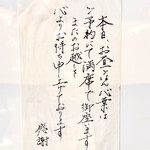 本日、お昼ごはん心葉は
ご予約にて満席で御座います
またのお越しを
心よりお待ち申し上げております
感謝